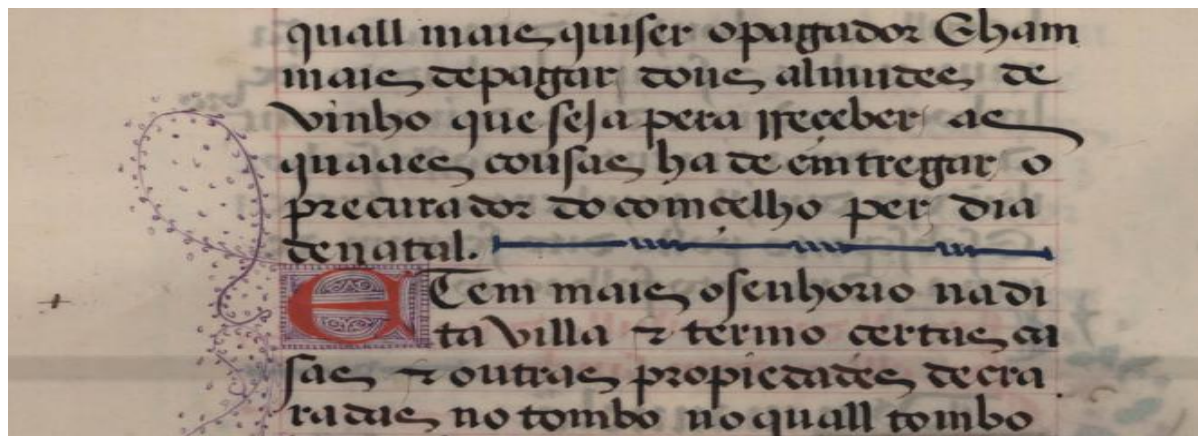 quall mais quiser opagador E ham
mais depagar dous almudes de
vinho que seJa pera rreçeber as
quaaes cousas ha de emtregar o
precurador do comçelho per dia
denatal.
E Tem mais osenhorio na di
ta villa ⁊ termo certas ca
sas ⁊ outras propiedades decra
radas no tombo no quall tombo